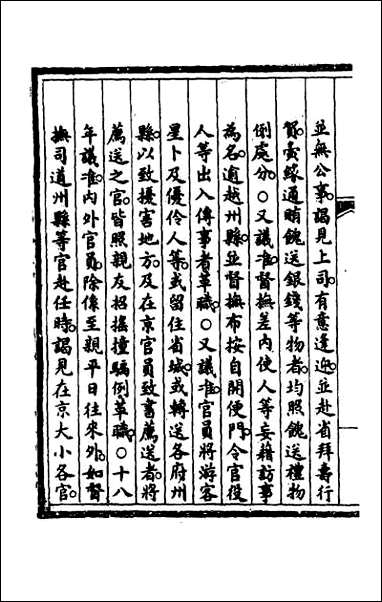 並無公事謁見上司有意逢迎並赴省拜壽行
賀夤緣通賄餽送銀錢等物者均照餽送禮物
例處分○又議准督撫差內使人等妄藉訪事
為名逾越州縣並督撫布按自開便門令官役
人等出入傳事者革職○又議准官員將游客
星卜及優伶人等或留住省城或轉送各府州
縣以致擾害地方及在京官員致書薦送者將
薦送之官皆照親友招搖撞騙例革職○十八
年議准內外官員除係至親平日往來外如督
撫司道州縣等官赴任時謁見在京大小各官